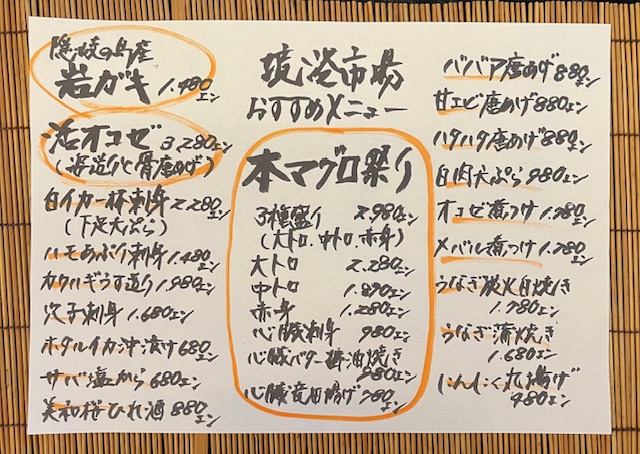 隠岐の島産
岩ガキ 1.480エン
活オコゼ 3.280エン
(姿造りと骨唐あげ)
白イカ一杯刺身 2.280エン
(下足天ぷら)
ハモあぶり刺身 1.480エン
カワハギうす造り 1.980エン
穴子刺身 1.680エン
ホタルイカ沖漬け 680エン
サバ塩から 680エン
美和桜ひれ酒 880エン
境港市場
おすすめメニュー
本マグロ祭り
3種盛り 2.980エン
(大トロ、中トロ、赤身)
大トロ 2.280エン
中トロ 1.890エン
赤身 1.280エン
心臓刺身 980エン
心臓バター醤油焼き
980エン
心臓竜田揚げ 780エン
ババア唐あげ 880エン
甘エビ唐あげ 880エン
ハタハタ唐あげ 880エン
白肉天ぷら 980エン
オコゼ煮つけ 1.780エン
メバル煮つけ 1.780エン
うなぎ炭火白焼き
1.780エン
うなぎ蒲焼き
1.680エン
にんにく丸揚げ
480エン